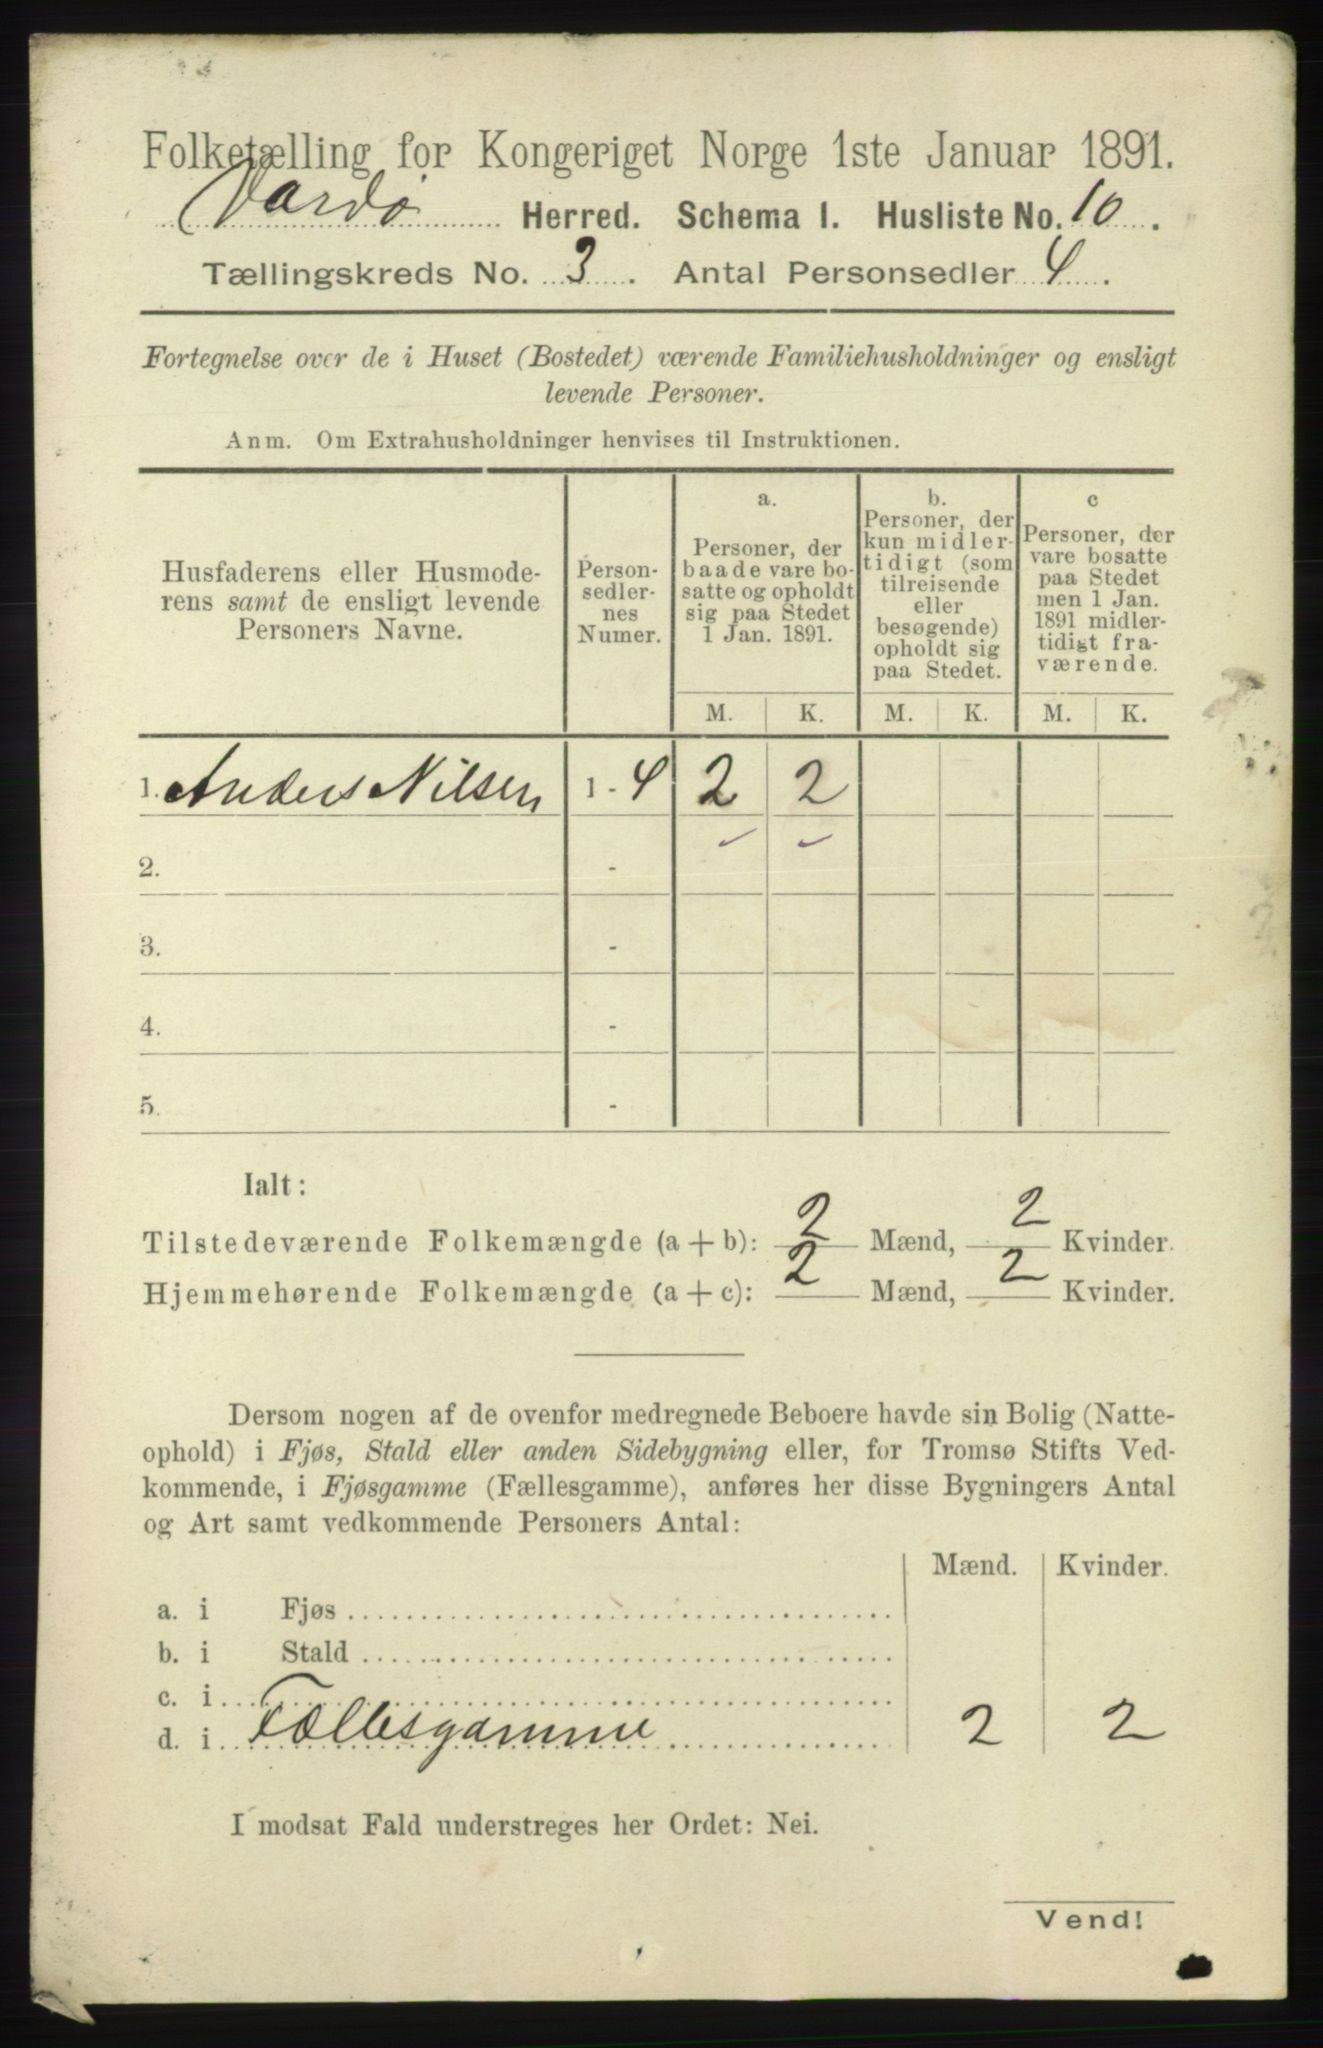 Folketælling for Kongeriget Norge 1ste Januar 1891.
Vardø Herred. Schema 1. Husliste No. 10.
Tællingskreds No. 3. Antal Personsedler 4.
Fortegnelse over de i Huset (Bostedet) værende Familiehusholdninger og ensligt
levende Personer.
Anm. Om Extrahusholdninger henvises til Instruktionen.
Husfaderens eller Husmode-
rens samt de ensligt levende
Personers Navne.
Person-
sedler-
nes
Numer.
a.
Personer, der
baade vare bo-
satte og opholdt
sig paa Stedet
1 Jan. 1891.
b.
Personer, der
kun midler-
tidigt (som
tilreisende
eller
besøgende)
opholdt sig
paa Stedet.
c
Personer, der
vare bosatte
paa Stedet
men 1 Jan.
1891 midler-
tidigt fra-
værende.
M. K. M. K. M. K.
1. Anders Nilsen 1 - 4 2 2
2. -
3. -
4. -
5. -
Ialt:
Tilstedeværende Folkemængde (a + b): 2 Mænd, 2 Kvinder.
Hjemmehørende Folkemængde (a + c): 2 Mænd, 2 Kvinder.
Dersom nogen af de ovenfor medregnede Beboere havde sin Bolig (Natte-
ophold) i Fjøs, Stald eller anden Sidebygning eller, for Tromsø Stifts Ved-
kommende, i Fjøsgamme (Fællesgamme), anføres her disse Bygningers Antal
og Art samt vedkommende Personers Antal:
Mænd. Kvinder.
a. i Fjøs
b. i Stald
c. i
d. i Fællesgamme 2 2
I modsat Fald understreges her Ordet: Nei.
Vend!